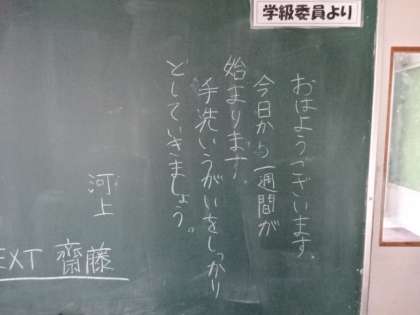 学級委員より
おはようございます。
今日から一週間が
始まります。
手洗いうがいをしっかり
としていきましょう。
河上
EXT 齋藤